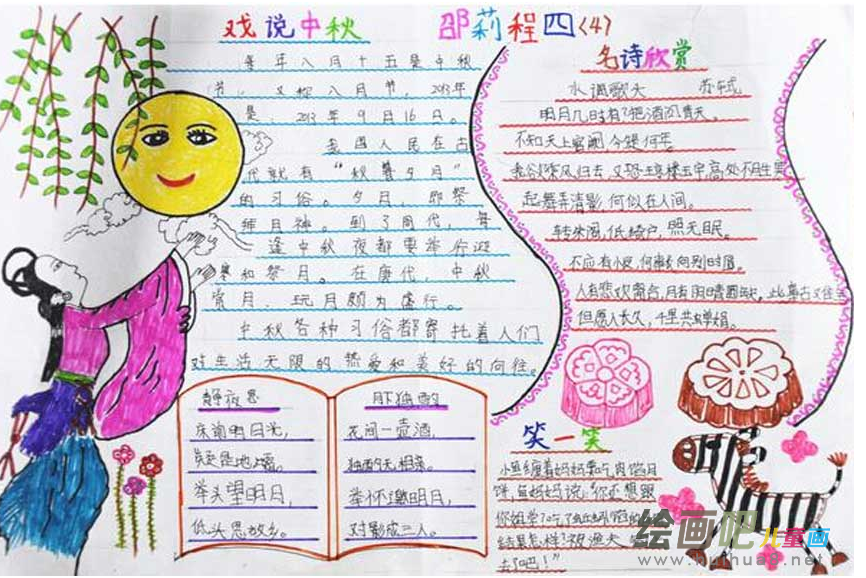 戏说中秋 邵莉程四(4)
每年八月十五是中秋
节，又称八月节，2013年
是，2013年9月16日。
我国人民在古
代就有“秋暮夕月”
的习俗。夕月，即祭
拜月神。到了周代，每
逢中秋夜都要举行迎
寒和祭月。在唐代，中秋
赏月、玩月颇为盛行。
中秋各种习俗都寄托着人们
对生活无限的热爱和美好的向往。
名诗欣赏
水调歌头 苏轼
明月几时有？把酒问青天。
不知天上宫阙，今夕是何年。
我欲乘风归去，又恐琼楼玉宇，高处不胜寒
起舞弄清影，何似在人间。
转朱阁，低绮户，照无眠。
不应有恨，何事长向别时圆。
人有悲欢离合，月有阴晴圆缺，此事古难全
但愿人长久，千里共婵娟。
静夜思
床前明月光，
疑是地上霜。
举头望明月，
低头思故乡。
月下独酌
花间一壶酒，
独酌无相亲。
举杯邀明月，
对影成三人。
笑一笑
小鱼缠着妈妈要吃肉馅月
饼，鱼妈妈说：“你还想跟
你姐学？吃了蚯蚓馅的
结果怎样？被渔夫
去了吧！”
绘画吧儿童画
www.huihua8.net